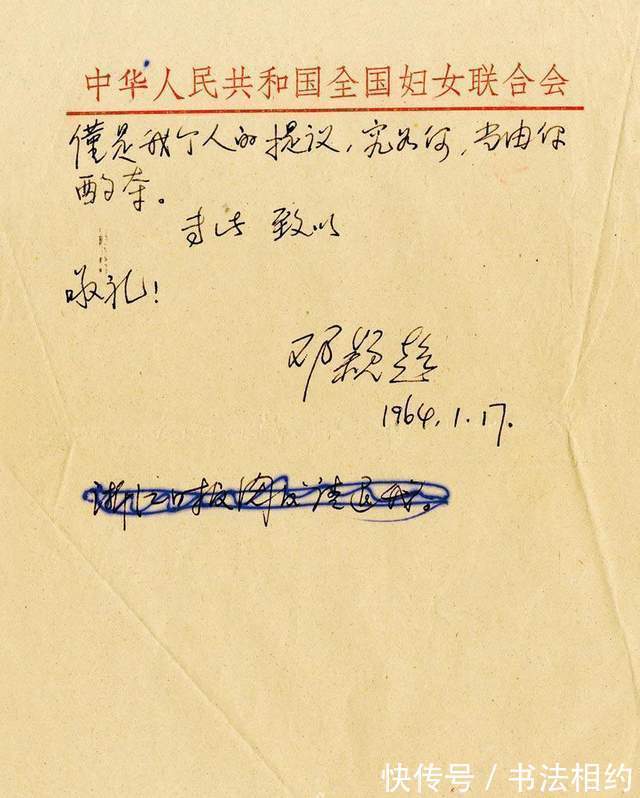 中华人民共和国全国妇女联合会
僅是我个人的提议，究如何，当由你
酌夺。
专此 致以
敬礼！
邓颖超
1964.1.17.
浙江日报阅后请退我。
快传号 / 书法相约